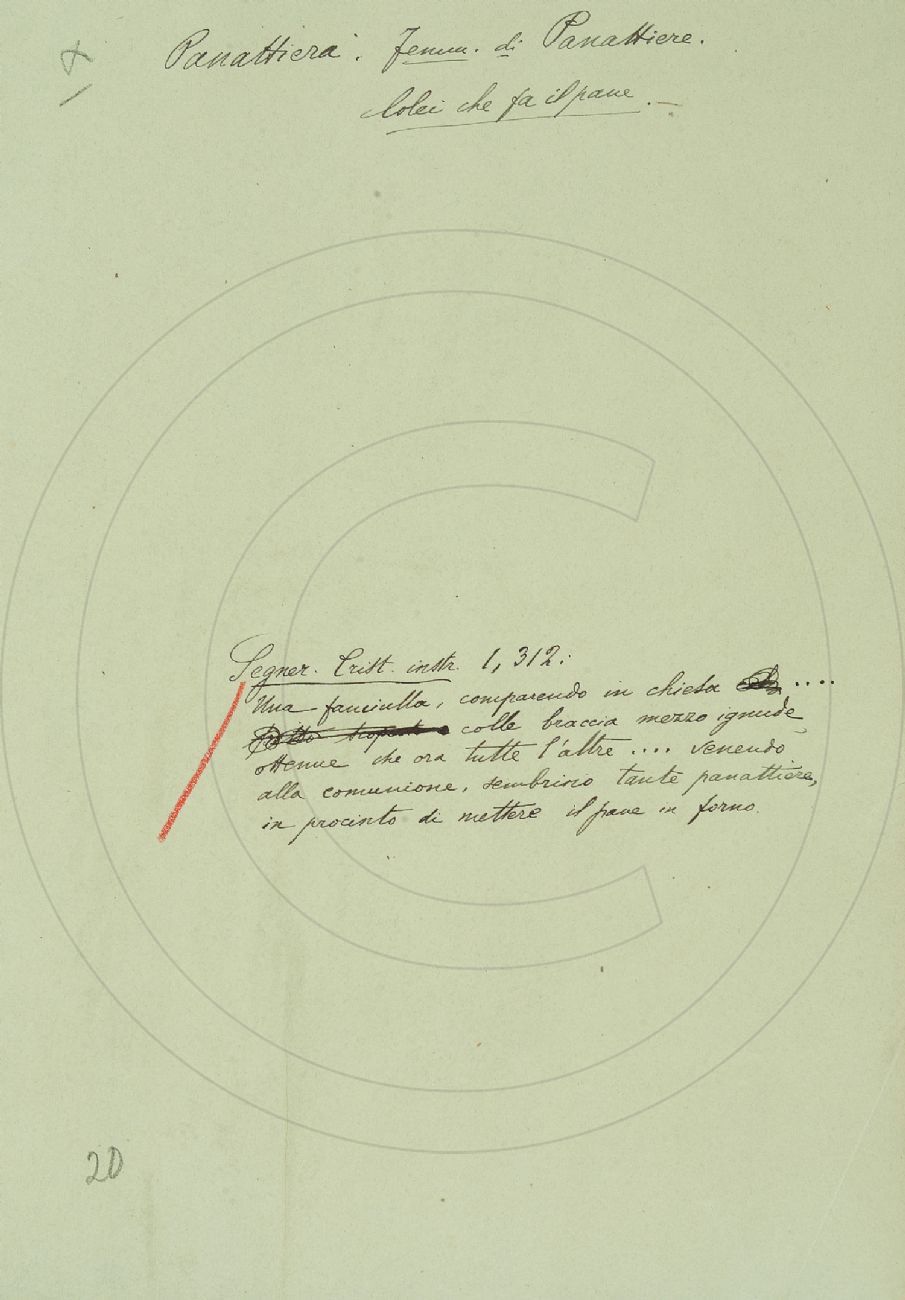 Panattiera. Femm. di Panattiere.
Colei che fa il pane.
Segner. Crist. instr. 1, 312:
Una fanciulla, comparendo in chiesa ....
colle braccia mezzo ignude
ottenne che ora tutte l'altre .... venendo
alla comunione, sembrino tante panattiere,
in procinto di mettere il pane in forno.
20